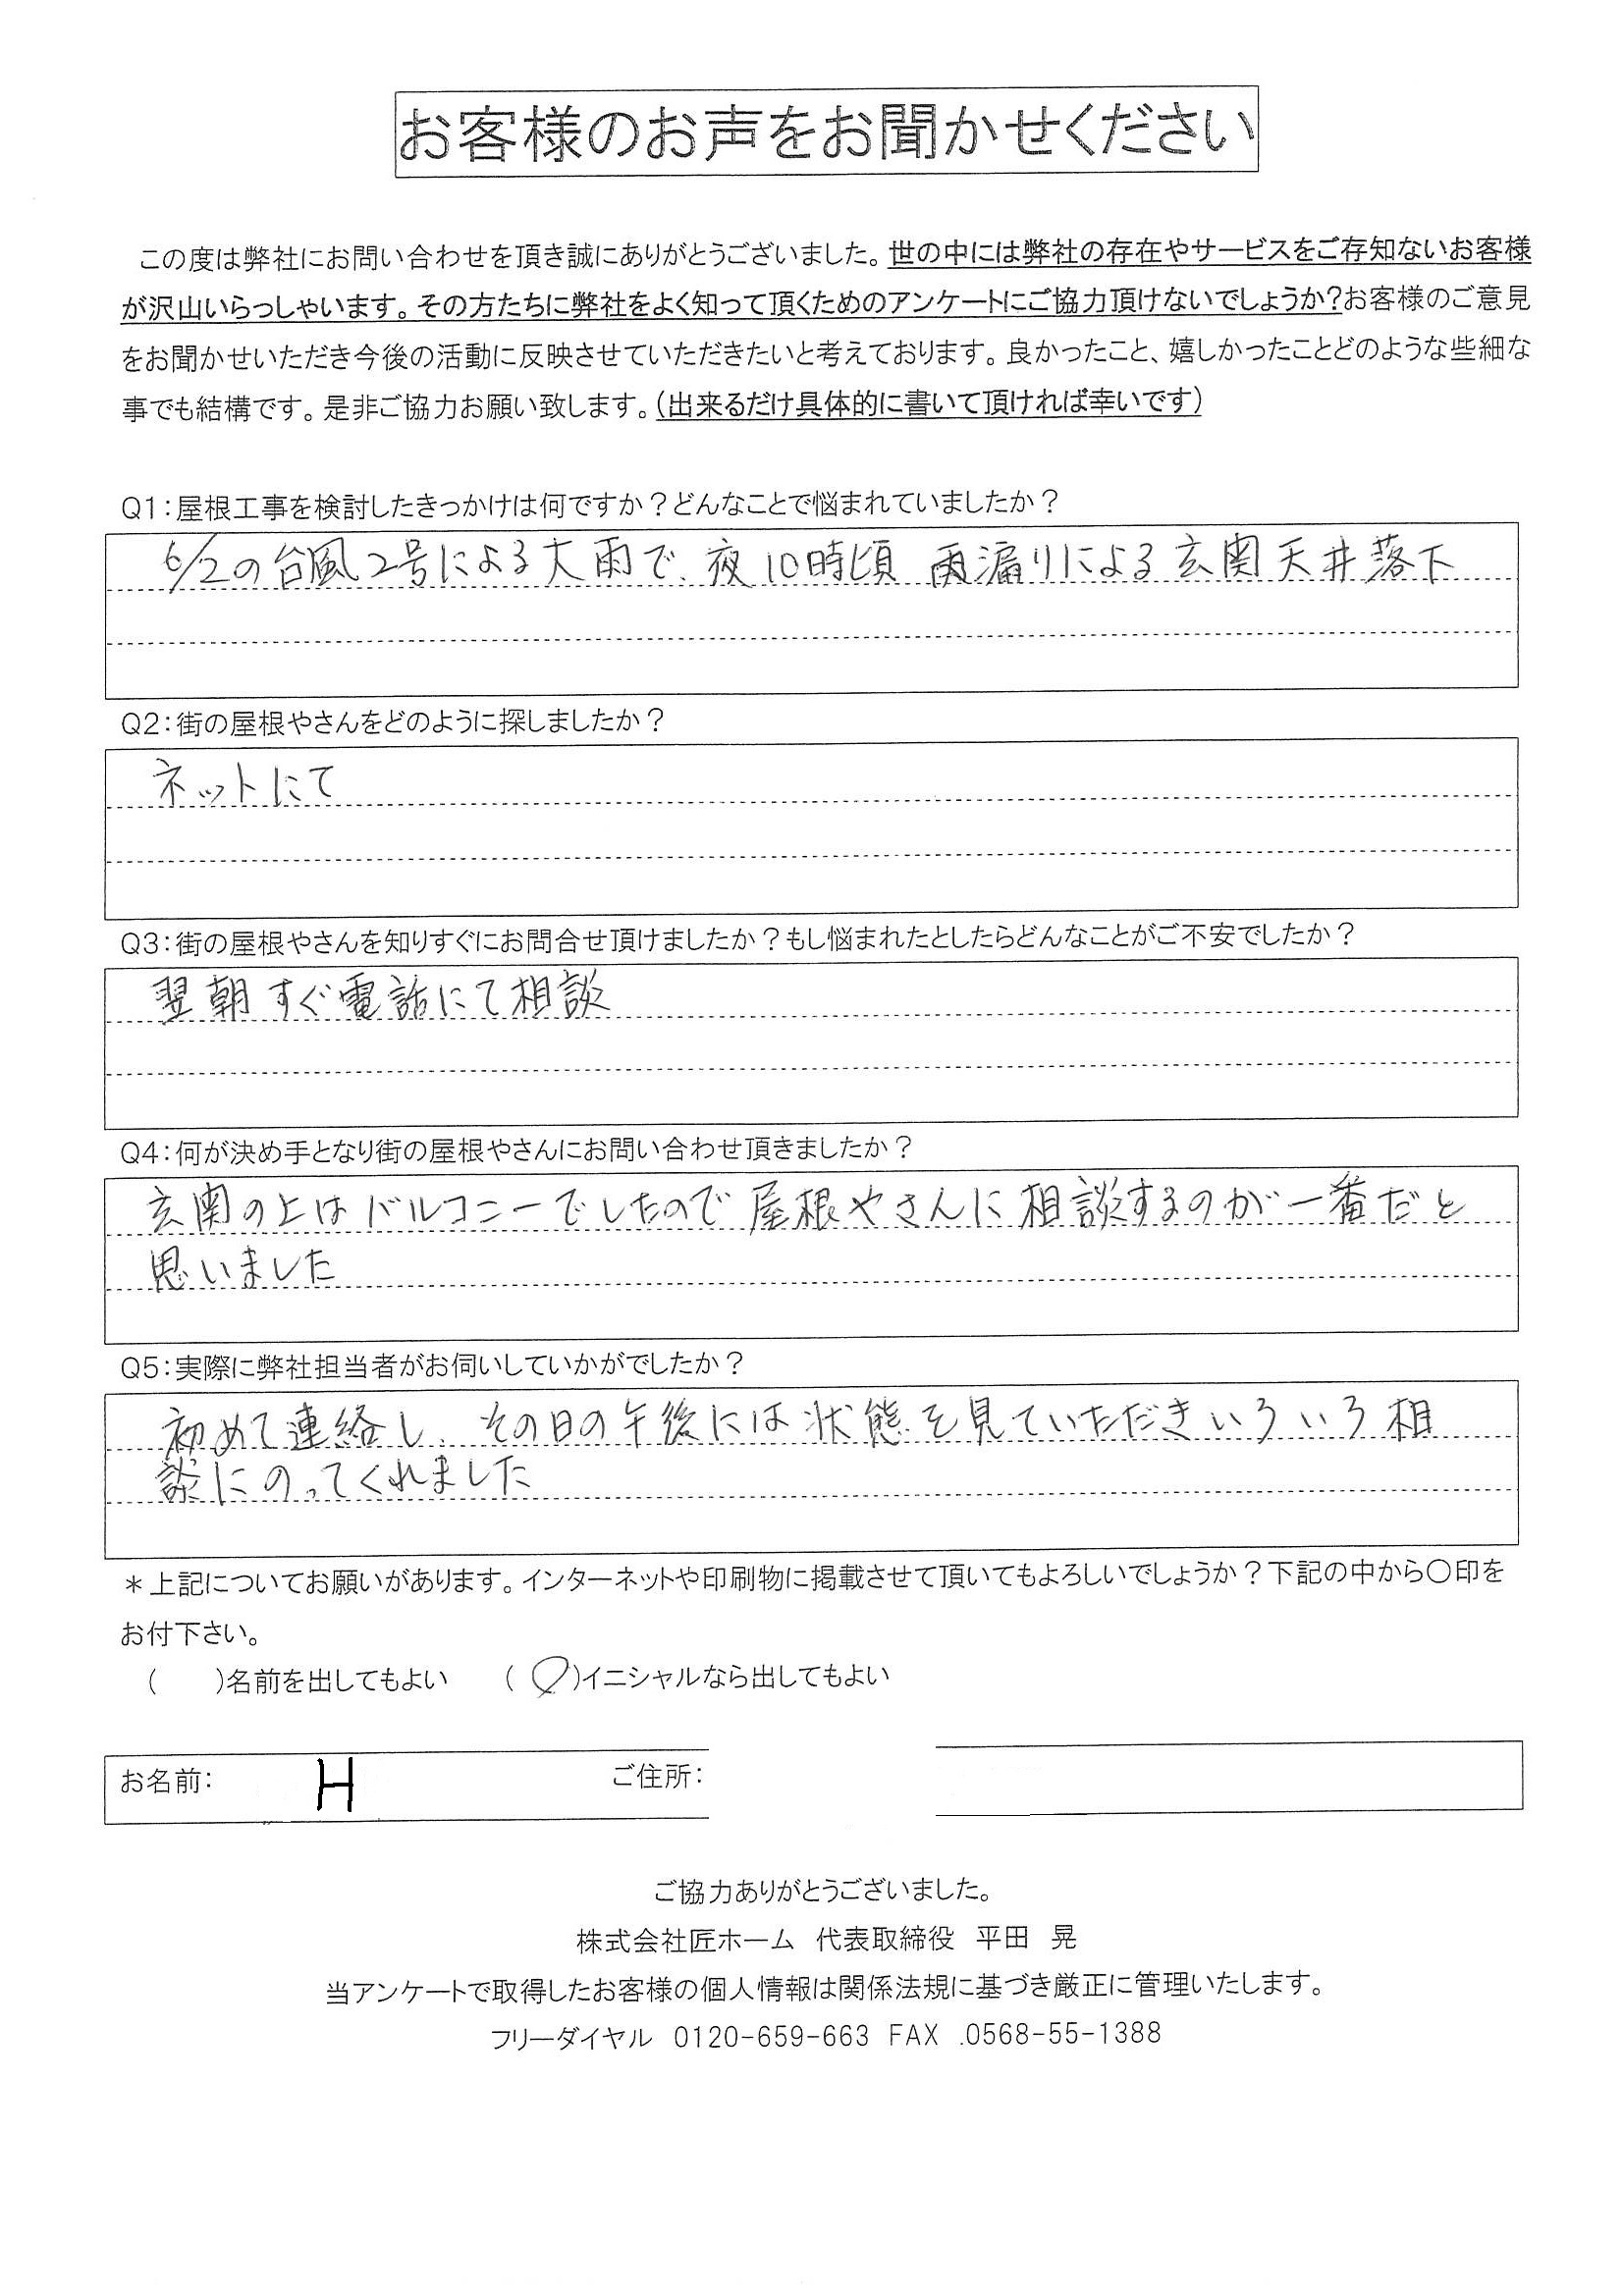 お客様のお声をお聞かせください
この度は弊社にお問い合わせを頂き誠にありがとうございました。世の中には弊社の存在やサービスをご存知ないお客様
が沢山いらっしゃいます。その方たちに弊社をよく知って頂くためのアンケートにご協力頂けないでしょうか?お客様のご意見
をお聞かせいただき今後の活動に反映させていただきたいと考えております。良かったこと、嬉しかったことどのような些細な
事でも結構です。是非ご協力お願い致します。(出来るだけ具体的に書いて頂ければ幸いです)
Q1:屋根工事を検討したきっかけは何ですか?どんなことで悩まれていましたか?
6/2の台風2号による大雨で、夜10時頃 雨漏りによる玄関天井落下
Q2:街の屋根やさんをどのように探しましたか?
ネットにて
Q3:街の屋根やさんを知りすぐにお問合せ頂けましたか?もし悩まれたとしたらどんなことがご不安でしたか?
翌朝すぐ電話にて相談
Q4:何が決め手となり街の屋根やさんにお問い合わせ頂きましたか?
玄関の上はバルコニーでしたので屋根やさんに相談するのが一番だと
思いました
Q5:実際に弊社担当者がお伺いしていかがでしたか?
初めて連絡し、その日の午後には状態を見ていただきいろいろ相
談にのってくれました
*上記についてお願いがあります。インターネットや印刷物に掲載させて頂いてもよろしいでしょうか?下記の中から〇印を
お付下さい。
( )名前を出してもよい (〇)イニシャルなら出してもよい
お名前: H ご住所:
ご協力ありがとうございました。
株式会社匠ホーム 代表取締役 平田 晃
当アンケートで取得したお客様の個人情報は関係法規に基づき厳正に管理いたします。
フリーダイヤル 0120-659-663 FAX .0568-55-1388